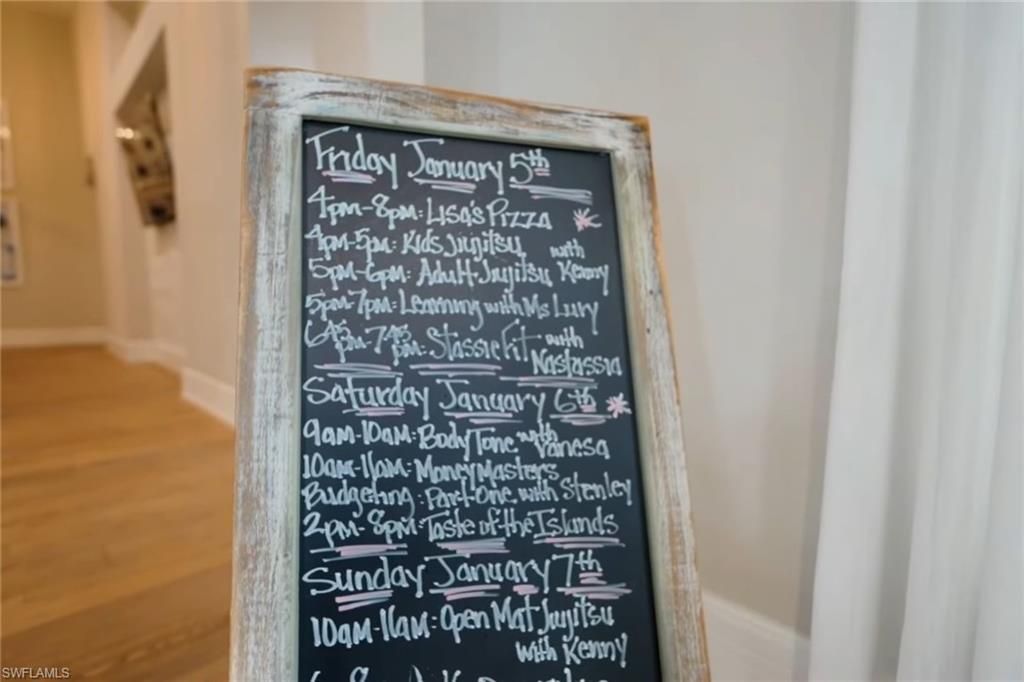 Friday January 5th
4pm-8pm: Lisa's Pizza
4pm-5pm: Kids Jiujitsu
5pm-6pm: Adult Jiujitsu with Kenny
5pm-7pm: Learning with Ms Lury
6:45pm-7:45pm: StassieFit with Nastassia
Saturday January 6th
9am-10am: Body Tone with Vanesa
10am-11am: Money Masters
Budgeting: Part One with Stenley
2pm-8pm: Taste of the Islands
Sunday January 7th
10am-11am: Open Mat Jiujitsu
with Kenny
SWFLAMLS